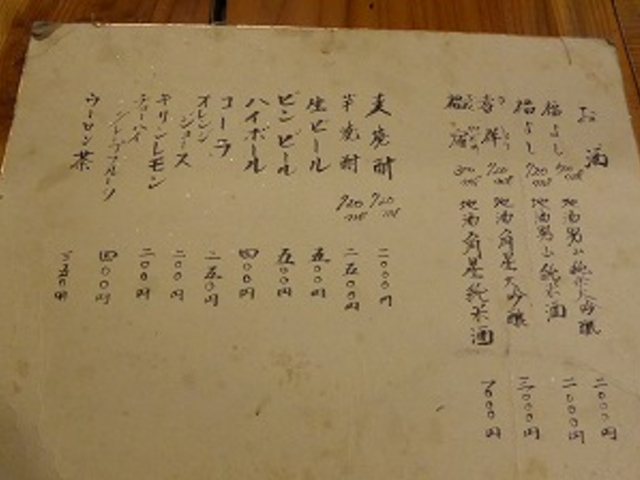 お酒
福よし 720ml 地酒男山純米大吟醸
福よし 720ml 地酒男山純米酒 二〇〇〇円
720ml 地酒角星大吟醸 三〇〇〇円
300ml 地酒角星純米酒
麦焼酎 720ml 二〇〇〇円
芋焼酎 720ml 二五〇〇円
生ビール 五〇〇円
ビンビール 五〇〇円
ハイボール 四〇〇円
コーラ 二五〇円
オレンジジュース 二〇〇円
キリンレモン 二〇〇円
チューハイ
グレープフルーツ 四〇〇円
ウーロン茶 二五〇円